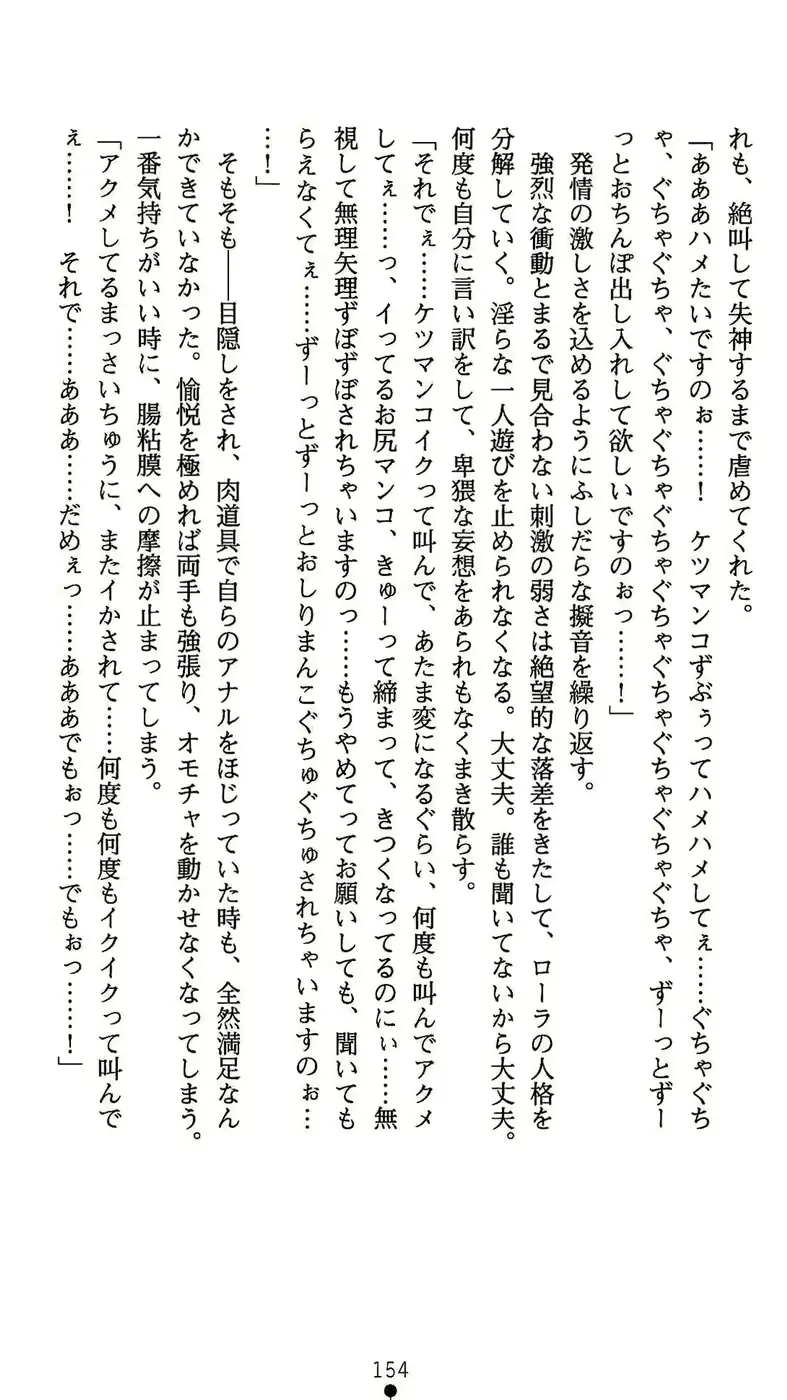 れも、絶叫して失神するまで虐めてくれた。
「あああハメたいですのぉ……！　ケツマンコずぶぅってハメハメしてぇ……ぐちゃぐち
ゃ、ぐちゃぐちゃ、ぐちゃぐちゃぐちゃぐちゃぐちゃぐちゃぐちゃ、ずーっとずー
っとおちんぽ出し入れして欲しいですのぉっ……！」
発情の激しさを込めるようにふしだらな擬音を繰り返す。
強烈な衝動とまるで見合わない刺激の弱さは絶望的な落差をきたして、ローラの人格を
分解していく。淫らな一人遊びを止められなくなる。大丈夫。誰も聞いてないから大丈夫。
何度も自分に言い訳をして、卑猥な妄想をあられもなくまき散らす。
「それでぇ……ケツマンコイクって叫んで、あたま変になるぐらい、何度も叫んでアクメ
してぇ……っ、イってるお尻マンコ、きゅーって締まって、きつくなってるのにぃ……無
視して無理矢理ずぼずぼされちゃいますのっ……もうやめてってお願いしても、聞いても
らえなくてぇ……ずーっとずーっとおしりまんこぐちゅぐちゅされちゃいますのぉ…
…！」
そもそも――目隠しをされ、肉道具で自らのアナルをほじっていた時も、全然満足なん
かできていなかった。愉悦を極めれば両手も強張り、オモチャを動かせなくなってしまう。
一番気持ちがいい時に、腸粘膜への摩擦が止まってしまう。
「アクメしてるまっさいちゅうに、またイかされて……何度も何度もイクイクって叫んで
ぇ……！　それで……あああ……だめぇっ……あああでもぉっ……でもぉっ……！」
154